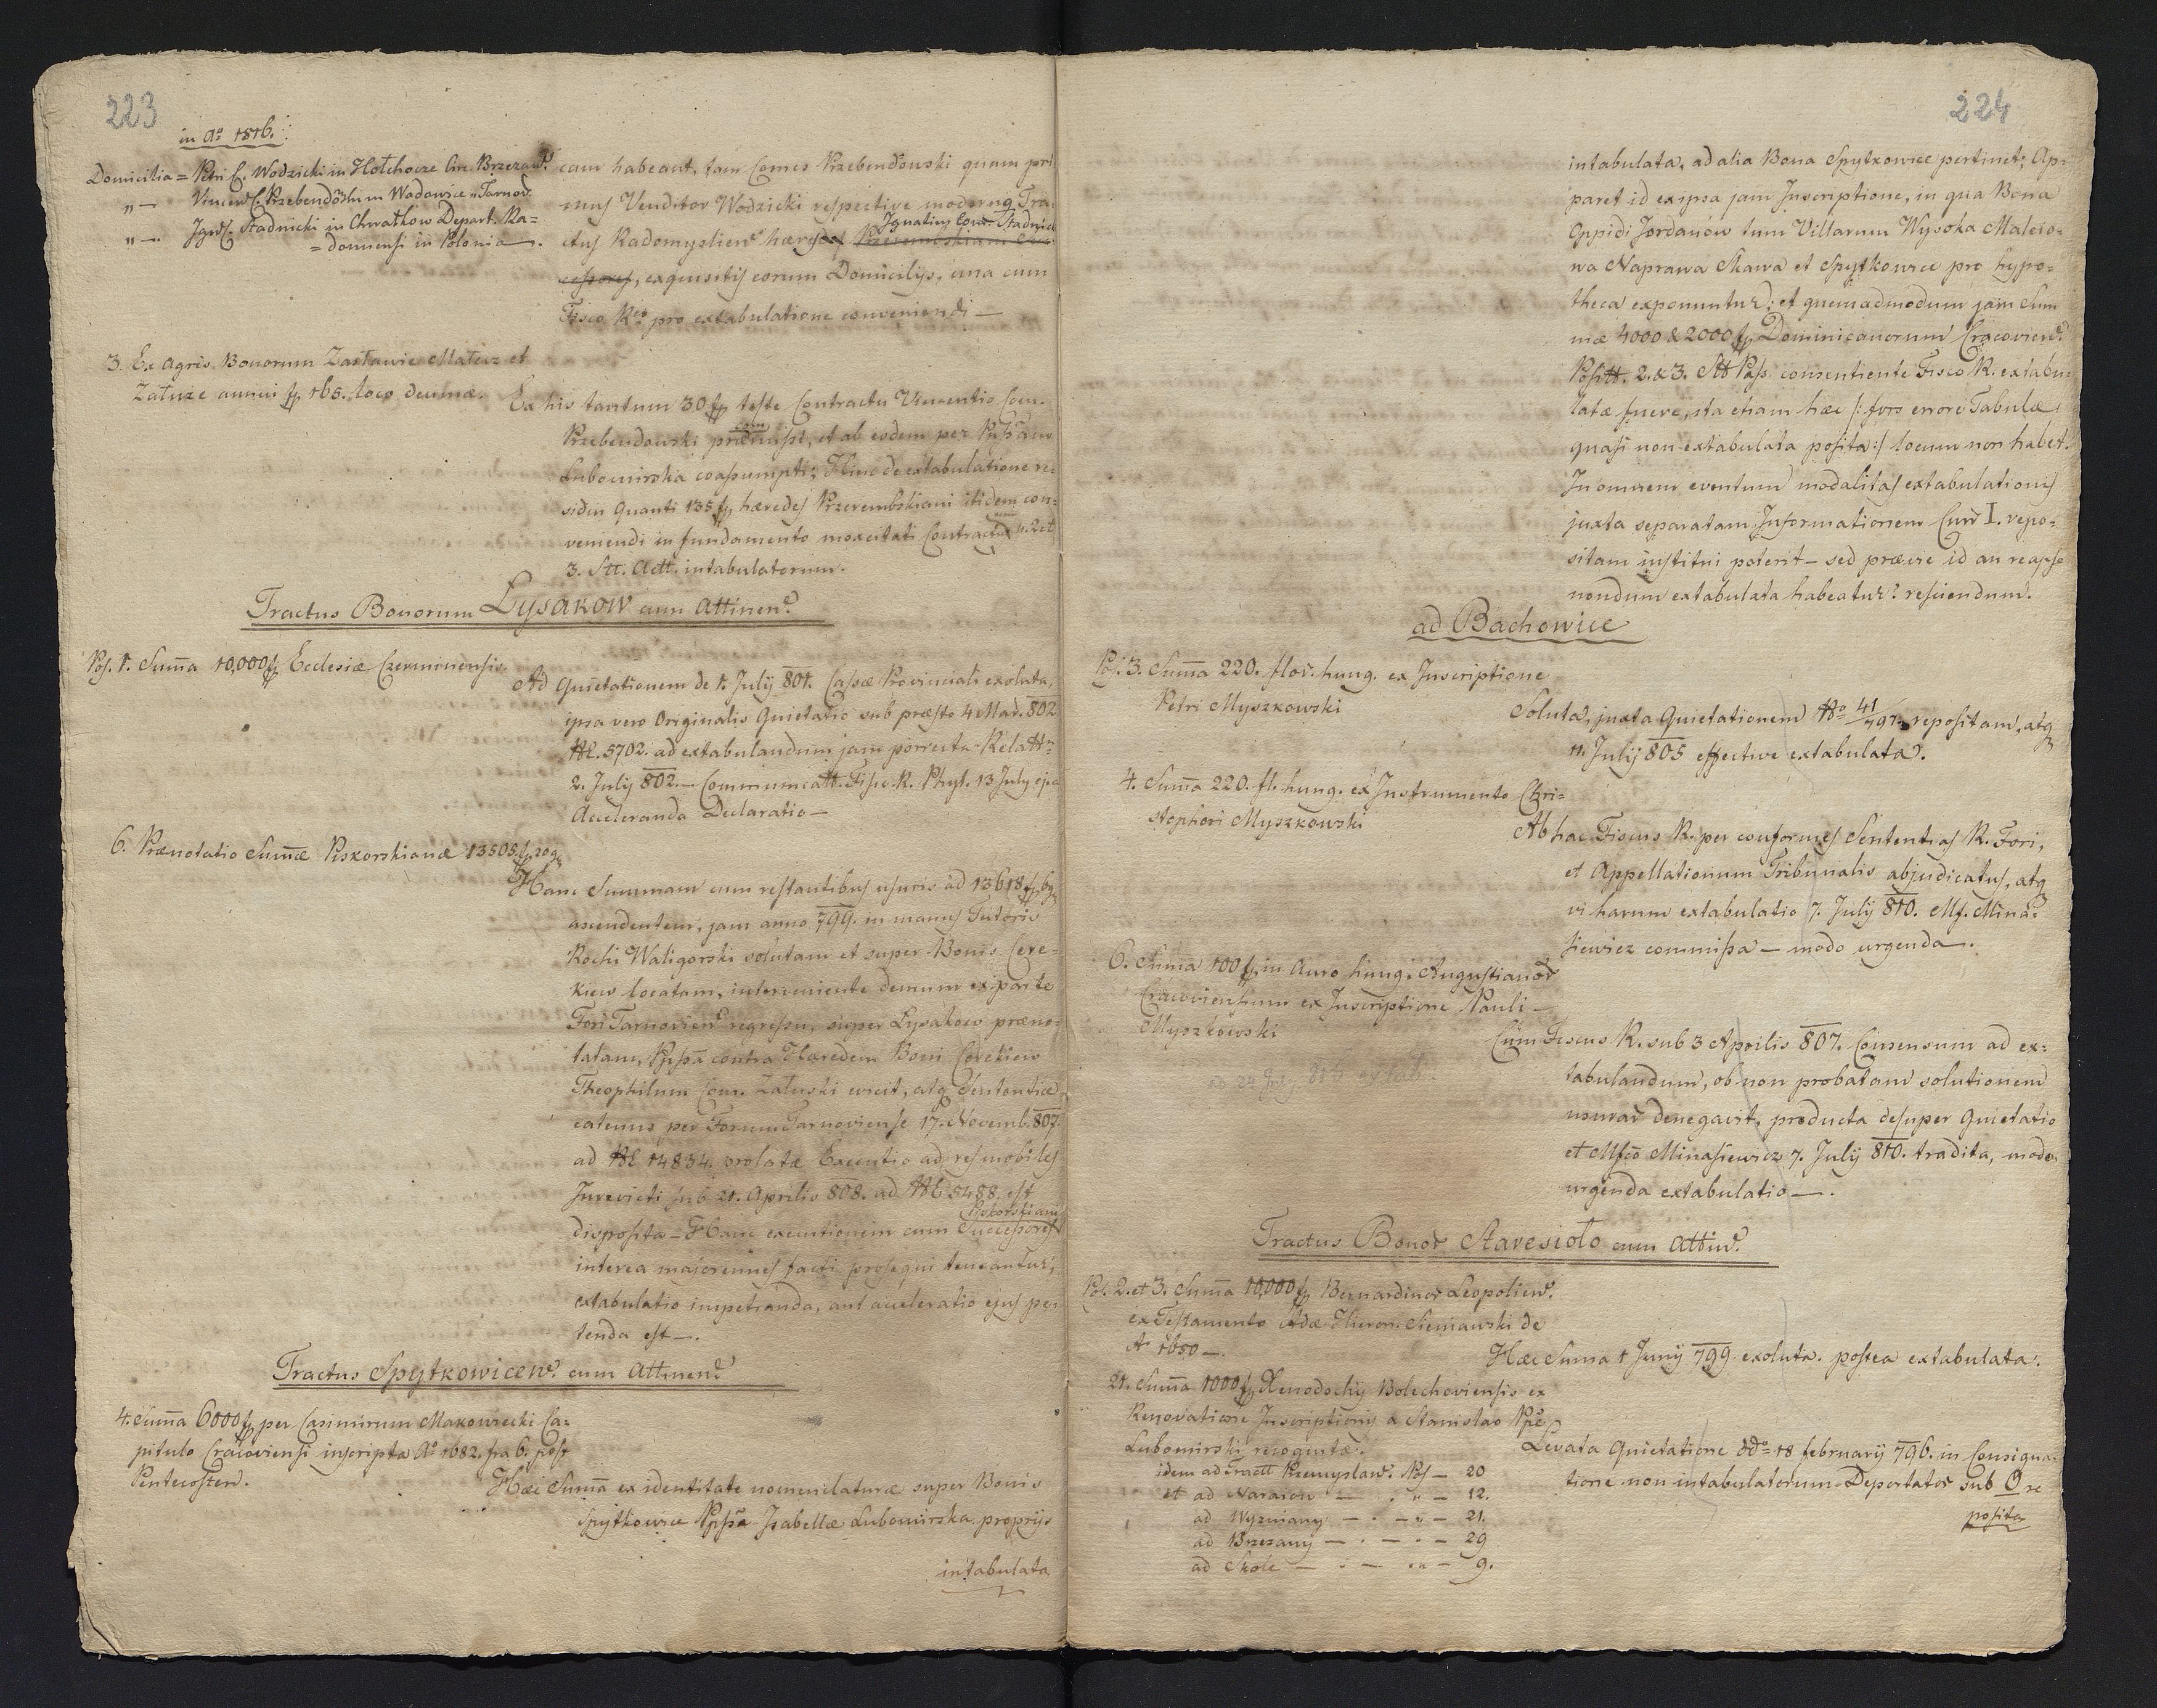 223
in Aº 1816.
Domicilia = Petri C. Wodzicki in Hołhocze Circ. Brzezan.
"— Vincen. C. Przebendoski in Wadowice " Tarnov.
"—. Ign. C. Stadnicki in Chwałkow Depart. Ra=
=domiensi in Polonia —.
cam habeant, tam Comes Przebendowski quam pri
mus Venditor Wodzicki respective modernus Tra
ctus Radomyslien. hæres Ignatius Com. Stadnicki
cessores, exquisitis eorum Domiciliis, una cum
Fisco Rº pro extabulatione conveniendi —
3. Ex agris Bonorum Zastawie Mateuz et
Zatuze annui fp 165. loco decimæ.
Ex his tantum 30 fp teste Contractu Vincentio Com.
Przebendowski præmissi, et ab eodem per
Lubomirska coassumpti; Hinc de extabulatione re=
sidui Quanti 135 fp hæredes Przerembskiani itidem con=
veniendi in fundamento moxcitati Contractus n. 2 et
3. Stt. Actt. intabulatorum.
Tractus Bonorum Lysakow cum Attinen.
Pos. 1. Suma 10,000 fp Ecclesiæ Czerminensis
Ad Quietationem de 1. July 801. Cassæ Provinciali exoluta,
ipsa vero Originalis Quietatio sub præsto 4 Mar. 802
5702. ad extabulandum jam porrecta. Relatt.
2. July 802. — Communicatt. Fisco R. 13 July ej.
Acceleranda Declaratio —
6. Prænotatio Sumæ Piskorskianæ 13505 fp 20 g
Hanc Summam cum restantibus usuris ad 13618 fp 6 g
ascendentem, jam anno 799. in manus Tutoris
Rochi Waligorski solutam et super Bonis Cere=
kiew locatam, interveniente demum ex parte
Fori Tarnovien. regressu, super Lysakow præno=
tatam, contra Hæredem Boni Cerekiew
Theophilum Com. Załuski evicit, atq Sententiæ
eatenus per Forum Tarnoviense 17. Novemb. 807.
ad 14834. prolatæ Executio ad res mobiles
Jurevicti sub 21. Aprilis 808. ad 5488. est
disposita — Hanc executionem cum Successores Piskorskiani
interea majorennes facti prosequi teneantur,
extabulatio impetranda, aut acceleratio ejus pe=
tenda est —.
Tractus Spytkowicen. cum Attinen.
4. Suma 6000 fp per Casimirum Makowiecki Ca=
pitulo Cracoviensi inscripta Aº 1682. fra 6. post
Pentecosten.
Hæc Suma ex identitate nomenclaturæ super Bonis
Spytkowice Isabellæ Lubomirska propriis
intabulata
224
intabulata, ad alia Bona Spytkowice pertinet; Ap=
paret id ex ipsa jam Inscriptione, in qua Bona
Oppidi Jordanów tum Villarum Wysoka Malejo=
wa Naprawa Skawa et Spytkowice pro hypo=
theca exponuntur: et quemadmodum jam Sum
mæ 4000 & 2000 fp Dominicanorum Cracovien.
Positt. 2. & 3. Stt Pass. consentiente Fisco R. extabu=
latæ fuere, ita etiam hæc /: fors errore Tabulæ
quasi non extabulata posita :/ locum non habet.
In omnem eventum modalitas extabulationis
juxta separatam Informationem Cum I. repo=
sitam institui poterit — sed præire id an reapse
nondum extabulata habeatur? resciendum.
ad Bachowice
Pos. 3. Suma 220. flor. hung. ex Inscriptione
Petri Myszkowski
Soluta, juxta Quietationem 41/797. repositam, atq
11. July 805 effective extabulata.
4. Suma 220. fl. hung. ex Instrumento Chri=
stophori Myszkowski
Ab hac Fiscus R. per conformes Sententias R. Fori,
et Appellationum Tribunalis abjudicatus, atq
vi harum extabulatio 7. July 810. Mf. Mina=
siewicz commissa — modo urgenda —.
6. Suma 100 fp in Auro hung. Augustianor
Cracoviensium ex Inscriptione Pauli —
Myszkowski
Cum Fiscus R. sub 3 Aprilis 807. Consensum ad ex=
tabulandum, ob non probatam solutionem
usurar denegavit, producta desuper Quietatio
et Mfco Minasiewicz 7. July 810. tradita, modo
urgenda extabulatio —.
Tractus Bonor Staresioło cum Attin.
Pos. 2. et 3. Suma 10,000 fp Bernardinor Leopolien.
ex Testamento Adæ Hieron. Sieniawski de
Aº 1650 —.
Hæc Suma 1 Juny 799. exoluta. postea extabulata.
21. Suma 1000 fp Xenodochy Bolechoviensis ex
Renovatione Inscriptionis a Stanislao
Lubomirski recognitæ.
idem ad Tractt Przemyslan. Pos — 20
et ad Naraiow — . " — 12.
ad Wyzniany — . — " — 21.
ad Brzezany — . — . — 29
ad Skole — . — " — 9.
Levata Quietatione ddº 18 february 796. in Consigna=
tione non intabulatorum Deportator sub O re
posita